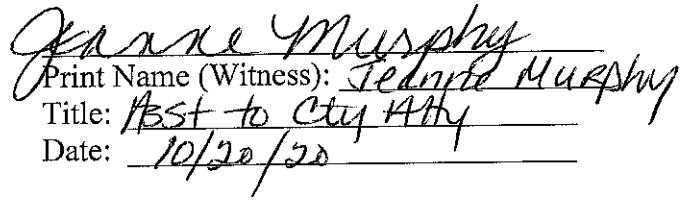 Jeanne Murphy
Print Name (Witness): Jeanne Murphy
Title: Asst to Cty Atty
Date: 10/20/20